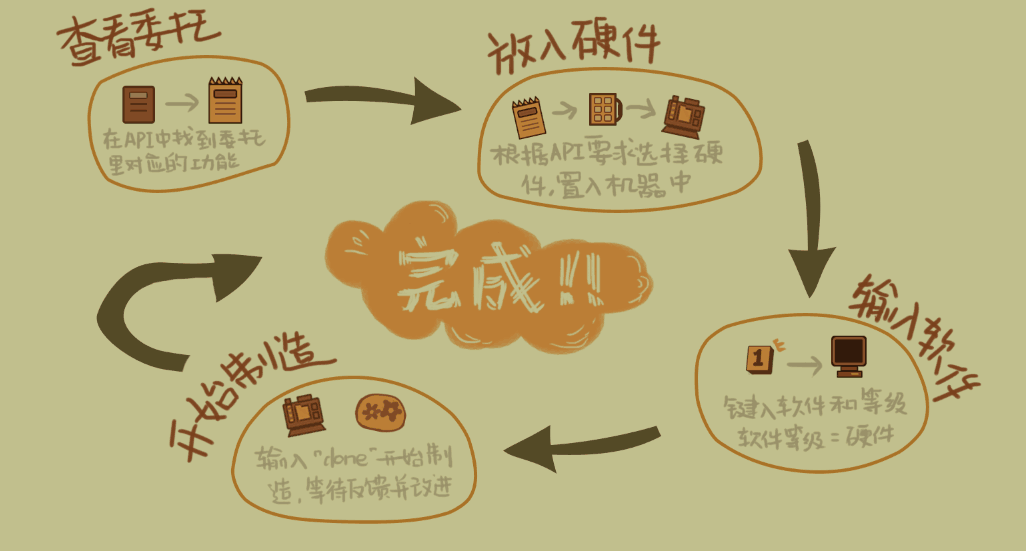 查看委托
在API中找到委托
里对应的功能
放入硬件
根据API要求选择硬
件,置入机器中
输入软件
1
键入软件和等级
软件等级=硬件
开始制造
输入“done”开始制
造,等待反馈并改进
完成!!